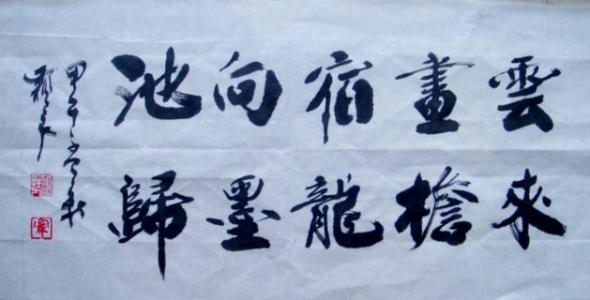 雲來
畫檐
宿龍
向墨
池歸
甲午